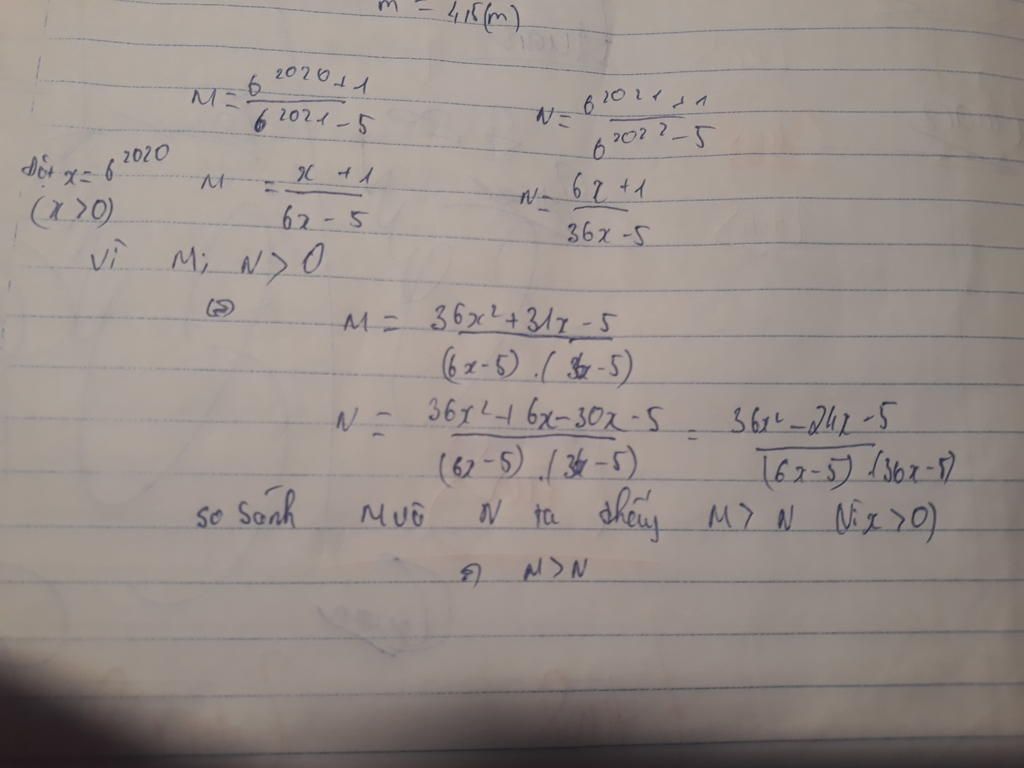 m = 4,5(m)
M = \frac{6^{2020}+1}{6^{2021}-5} N = \frac{6^{2021}+1}{6^{2022}-5}
Đặt x = 6^{2020} M = \frac{x+1}{6x-5} N = \frac{6x+1}{36x-5}
(x > 0)
Vì M; N > 0
M = \frac{36x^2+31x-5}{(6x-5).(36x-5)}
N = \frac{36x^2+6x-30x-5}{(6x-5).(36x-5)} = \frac{36x^2-24x-5}{(6x-5).(36x-5)}
so sánh M và N ta thấy M > N (Vì x > 0)
⇒ M > N